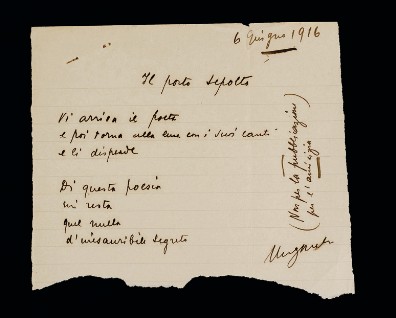 6 Giugno 1916
Il porto sepolto
Vi arriva il poeta
e poi torna alla luce con i suoi canti
e li disperde
Di questa poesia
mi resta
quel nulla
d'inesauribile segreto
(Non per la pubblicazione
per l'amicizia)
Ungaretti